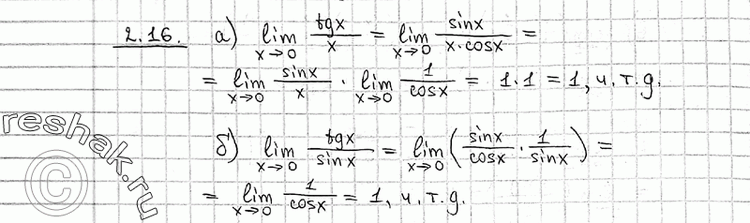 2.16. а) lim x→0 tgx/x = lim x→0 sinx/(x·cosx) =
= lim x→0 sinx/x · lim x→0 1/cosx = 1·1 = 1, ч.т.д.
б) lim x→0 tgx/sinx = lim x→0 (sinx/cosx · 1/sinx) =
= lim x→0 1/cosx = 1, ч.т.д.
reshak.ru
©